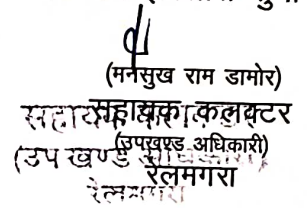 (मनसुख राम डामोर)
सहायक कलक्टर
(उपखण्ड अधिकारी)
रेलमगरा
सहायक
(उप खण्ड अधिकारी)
रेलमगरा